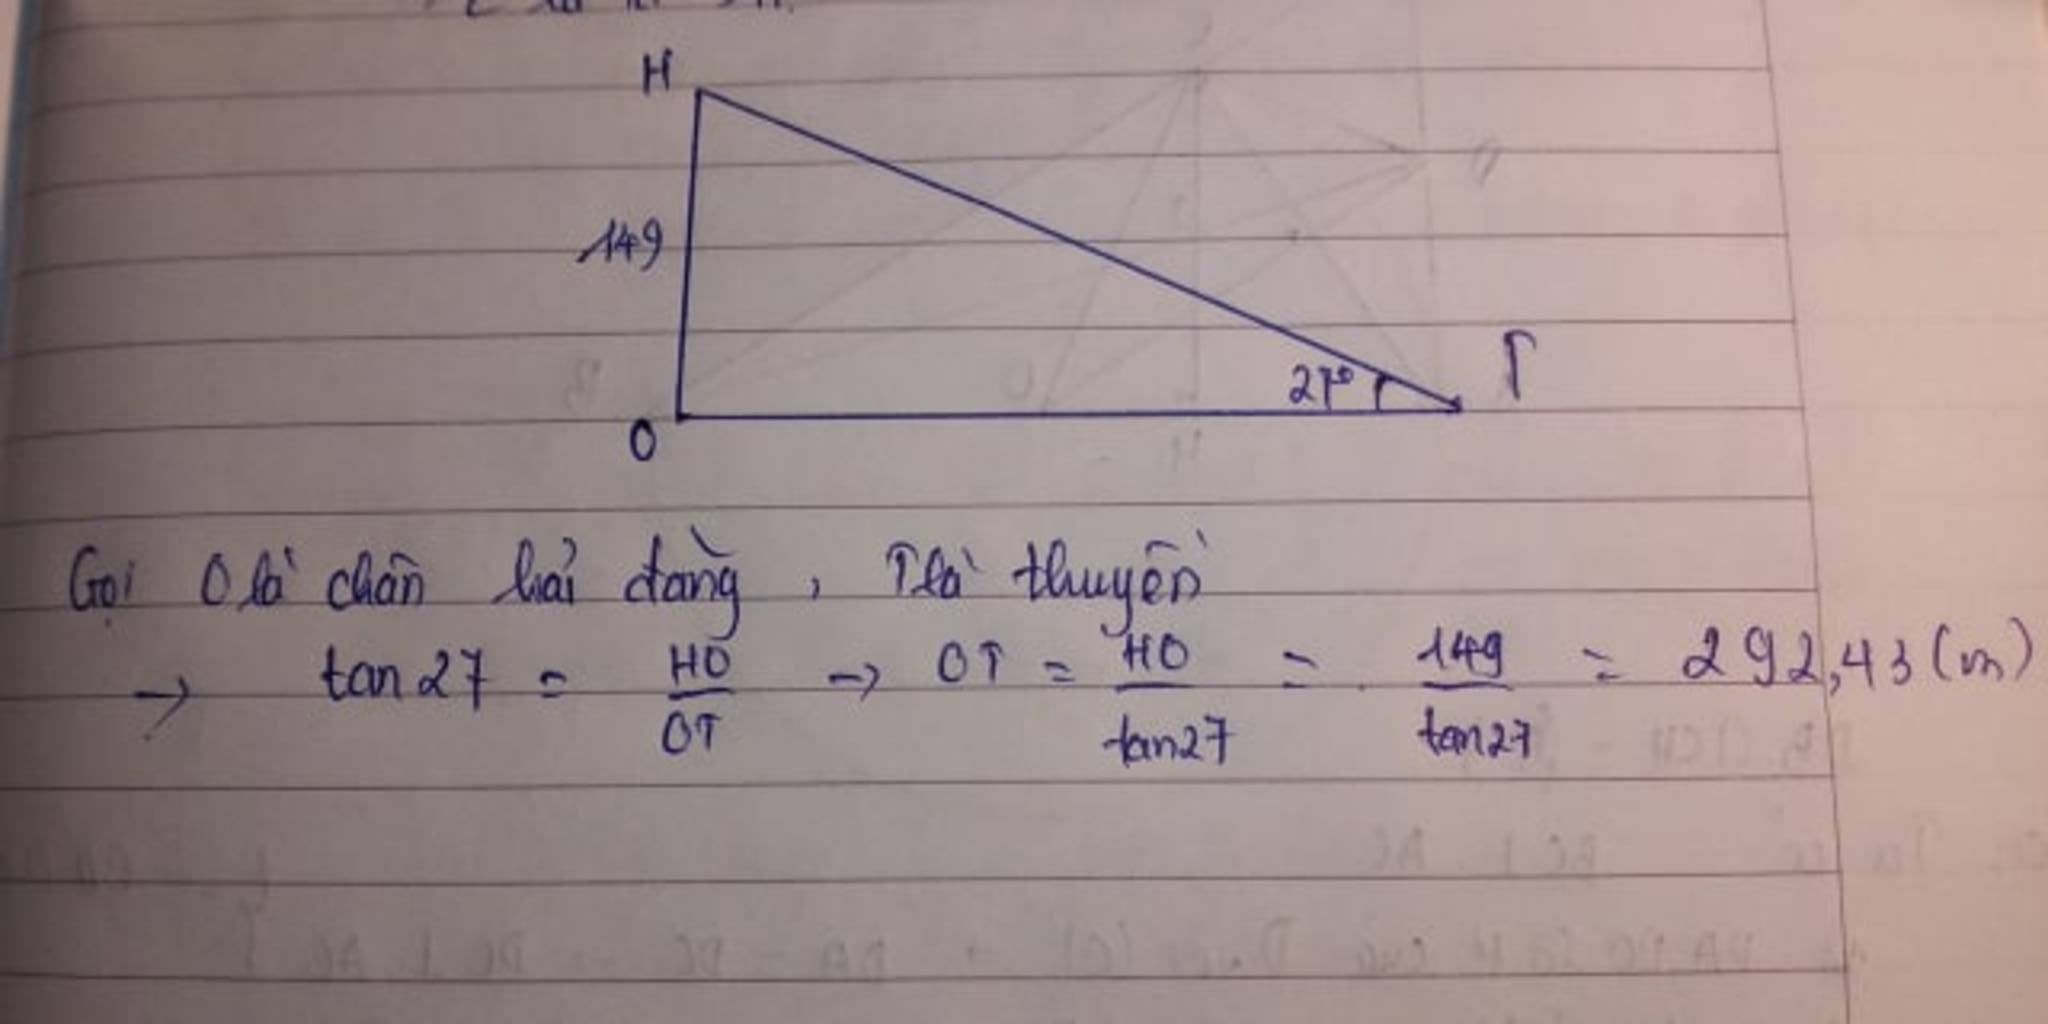 H
149
27° T
O
Gọi O là chân hải đăng, T là thuyền
→ tan 27 = HO/OT → OT = HO/tan27 = 149/tan27 = 292,43 (m)